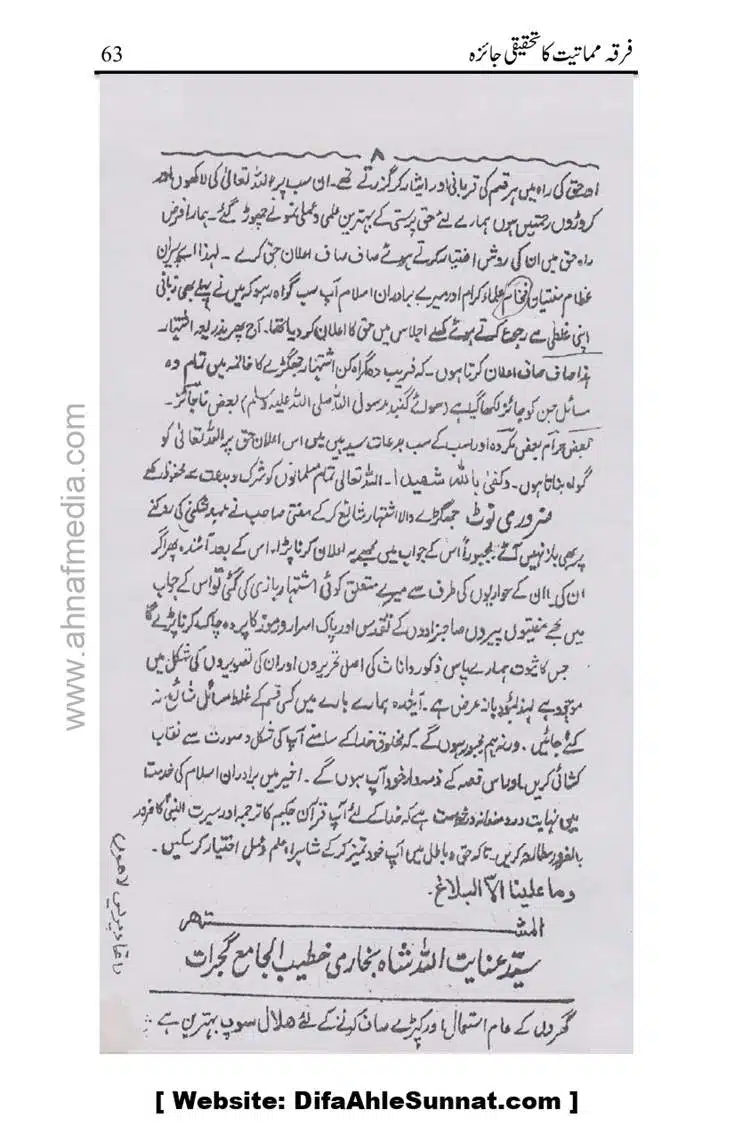 63 فرقہ مماتیت کا تحقیقی جائزہ
۸
اور حق کی راہ میں ہر قسم کی قربانی اور ایثار کر گزرتے تھے۔ ان سب پر اللہ تعالیٰ کی لاکھوں اور
کروڑوں رحمتیں ہوں ہمارے لئے حق پرستی کے بہترین علمی و عملی نمونے چھوڑ گئے۔ ہمارا فرض
راہ حق میں ان کی روش اختیار کرتے ہوئے صاف صاف اعلان حق کرے۔ لہذا اے پیران
عظام مفتیان فخام علماء کرام اور میرے برادران اسلام آپ سب گواہ رہو کہ میں نے پہلے بھی زبانی
اپنی غلطی سے رجوع کرتے ہوئے کھلے اجلاس میں حق کا اعلان کر دیا تھا۔ آج پھر بذریعہ اشتہار
ہذا صاف صاف اعلان کرتا ہوں۔ کہ فریب دہ گمراہ کن اشتہار جھگڑے کا خاتمہ میں تمام وہ
مسائل جن کو جائز لکھا گیا ہے (سوائے گنبد رسول اللہ صلی اللہ علیہ وسلم) بعض ناجائز۔
بعض حرام بعض مکروہ اور سب کے سب بدعات سیئہ ہیں میں اس اعلان حق پر اللہ تعالیٰ کو
گواہ بناتا ہوں۔ وکفیٰ باللہ شھیدا۔ اللہ تعالیٰ تمام مسلمانوں کو شرک و بدعت سے محفوظ رکھے
ضروری نوٹ جھگڑے والا اشتہار شائع کر کے مفتی صاحب نے عہد شکنی کی روکنے
پر بھی باز نہیں آئے مجبوراً اس کے جواب میں مجھے یہ اعلان کرنا پڑا۔ اس کے بعد آئندہ پھر اگر
ان کی یا ان کے حواریوں کی طرف سے میرے متعلق کوئی اشتہار بازی کی گئی تو اس کے جواب
میں مجھے مفتیوں پیروں صاحبزادوں کے تقدس اور پاک اسرار و رموز کا پردہ چاک کرنا پڑے گا
جس کا ثبوت ہمارے پاس ذکور و اناث کی اصل تحریروں اور ان کی تصویروں کی شکل میں
موجود ہے لہذا مؤدبانہ عرض ہے۔ آئندہ ہمارے بارے میں کسی قسم کے غلط مسائل شائع نہ
کئے جائیں۔ ورنہ ہم مجبور ہوں گے۔ کہ مخلوق خدا کے سامنے آپ کی شکل و صورت سے نقاب
کشائی کریں اور اس قصہ کے ذمہ دار خود آپ ہوں گے۔ اخیر میں برادران اسلام کی خدمت
میں نہایت درد مندانہ درخواست ہے کہ خدا کے لئے آپ قرآن حکیم کا ترجمہ اور سیرت النبیؐ کا ضرور
بالضرور مطالعہ کریں۔ تاکہ حق و باطل میں آپ خود تمیز کر کے شاہراہ علم و عمل اختیار کر سکیں۔
وما علینا الا البلاغ۔
المشتھر
سیّد عنایت اللہ شاہ بخاری خطیب الجامع گجرات
گھروں کے عام استعمال اور کپڑے صاف کرنے کے لئے ھلال سوپ بہترین ہے
پریس لاھور
www.ahnafmedia.com
[ Website: DifaAhleSunnat.com ]